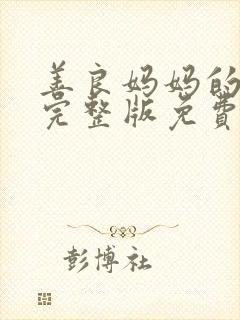 善良妈妈的
完整版免費
彭博社